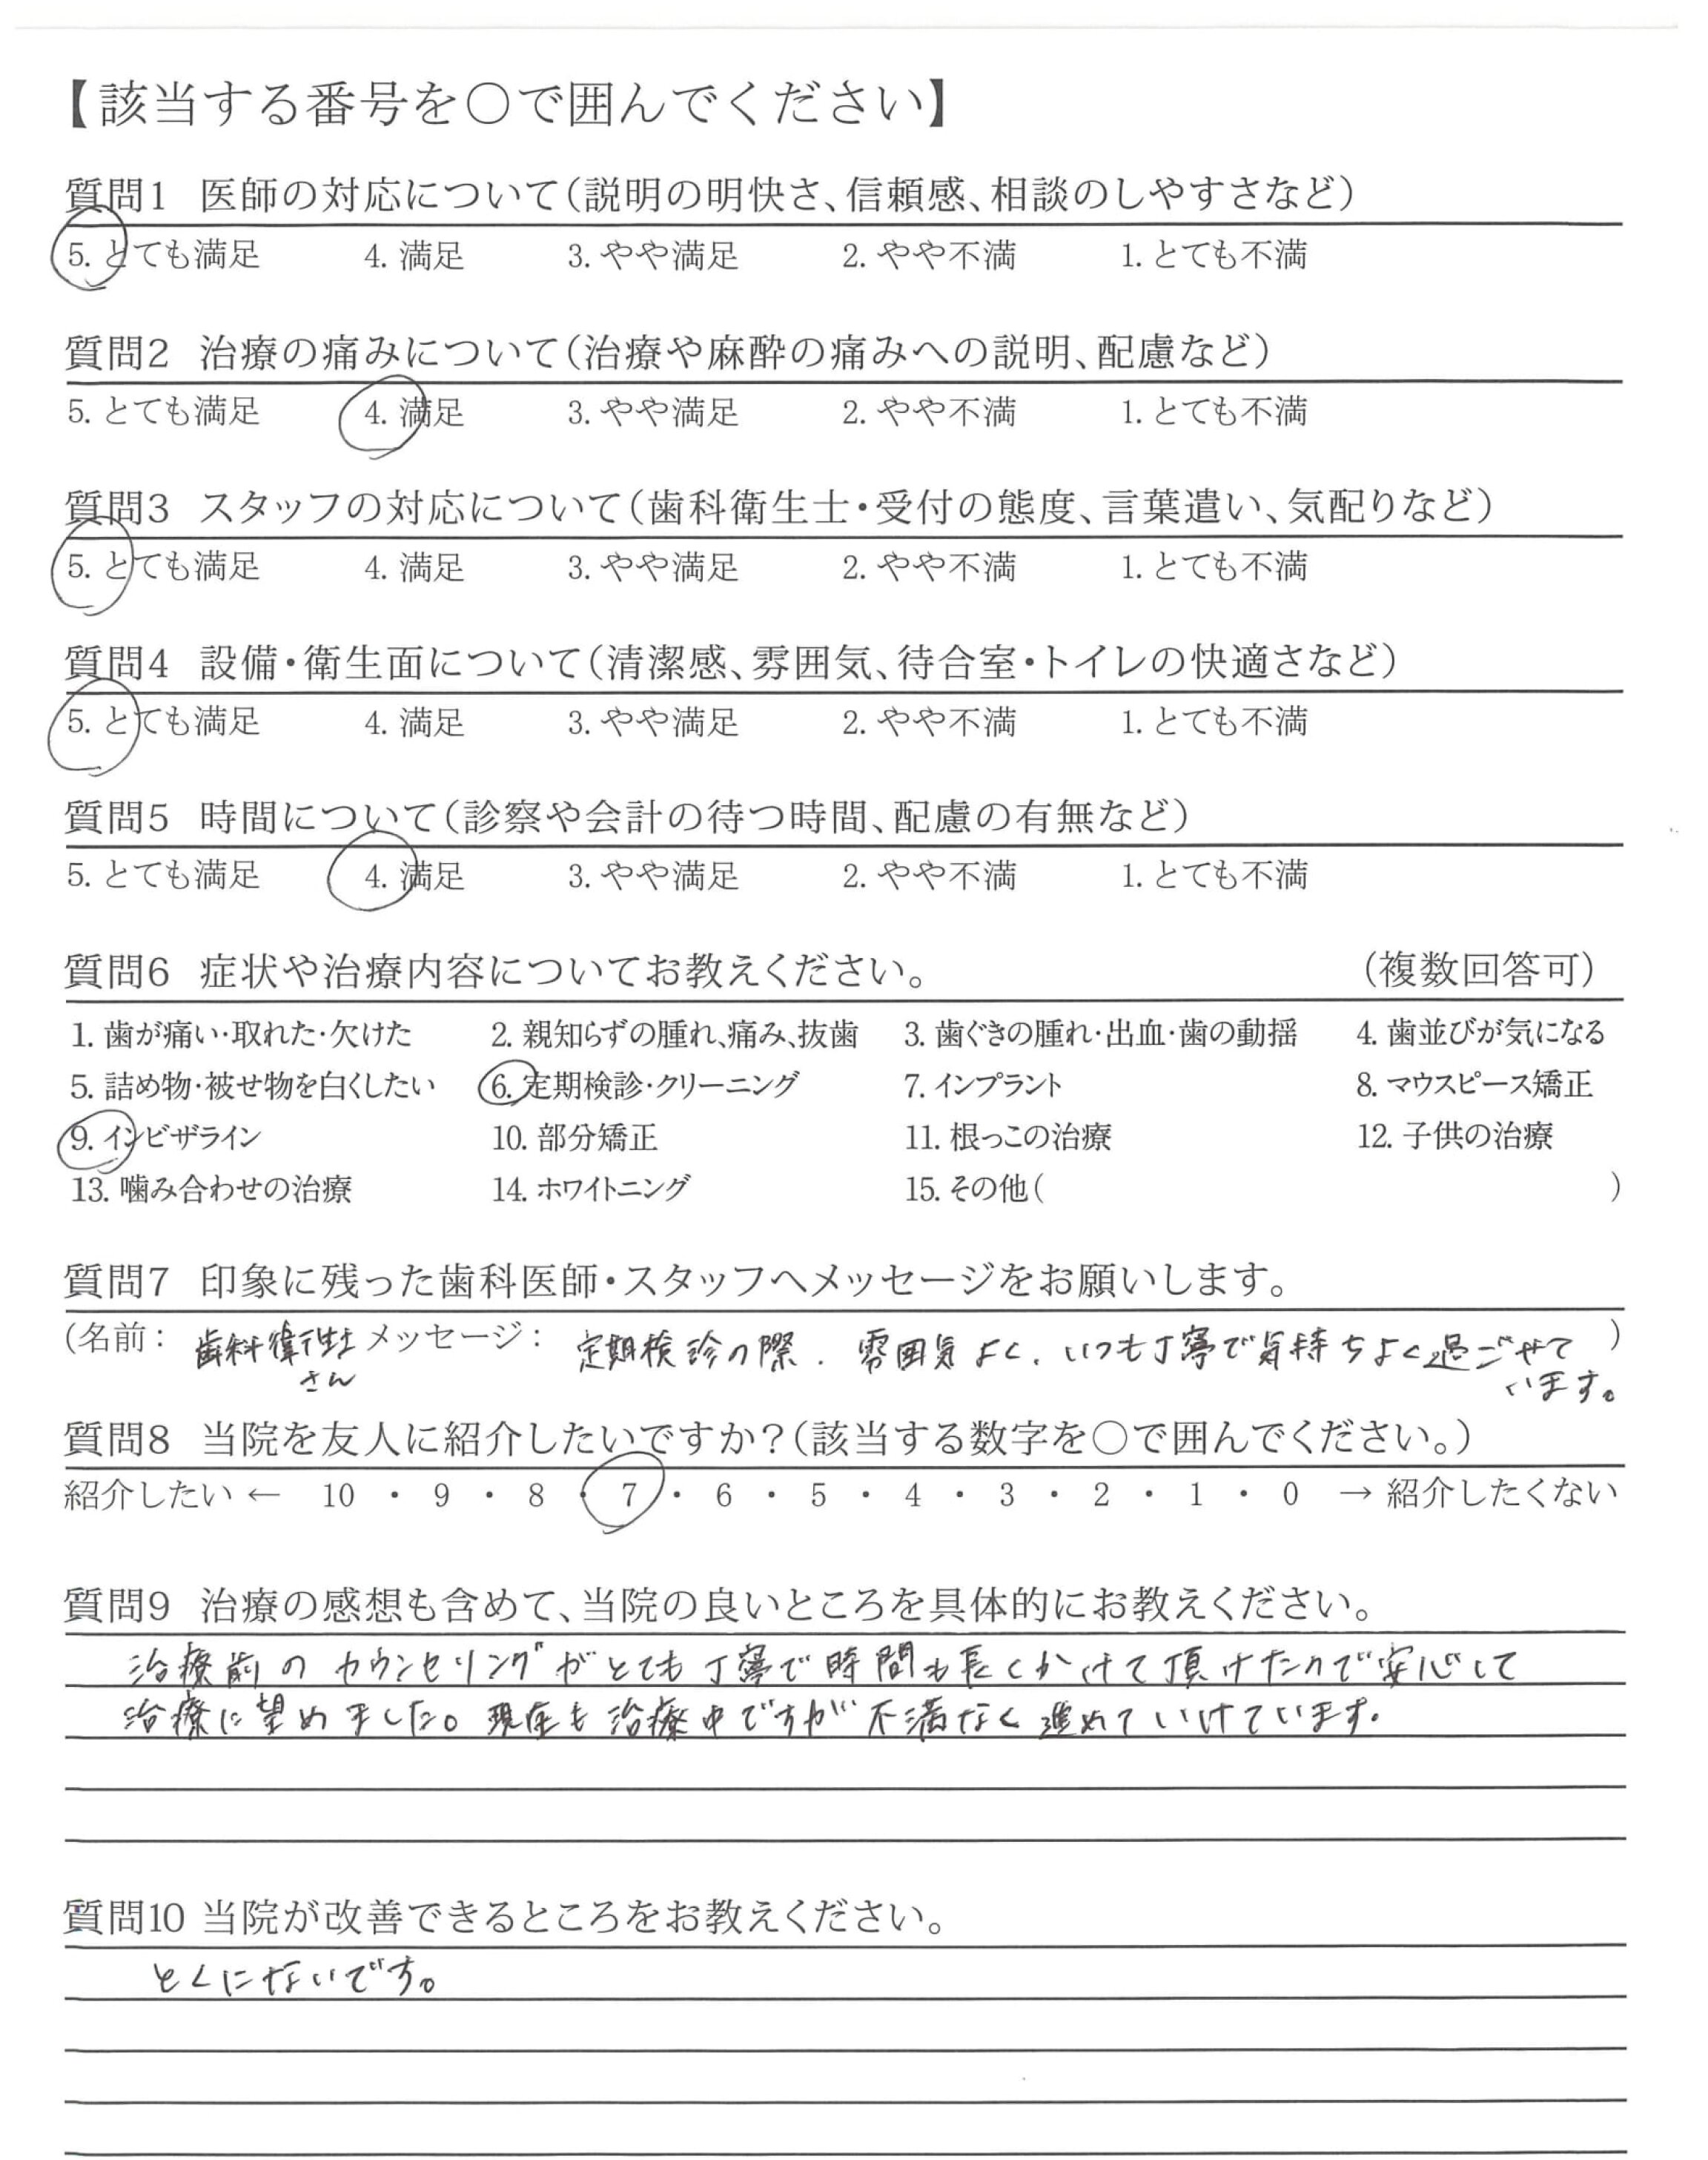 【該当する番号を○で囲んでください】
質問1 医師の対応について（説明の明快さ、信頼感、相談のしやすさなど）
5. とても満足 4. 満足 3. やや満足 2. やや不満 1. とても不満
質問2 治療の痛みについて（治療や麻酔の痛みへの説明、配慮など）
5. とても満足 4. 満足 3. やや満足 2. やや不満 1. とても不満
質問3 スタッフの対応について（歯科衛生士・受付の態度、言葉遣い、気配りなど）
5. とても満足 4. 満足 3. やや満足 2. やや不満 1. とても不満
質問4 設備・衛生面について（清潔感、雰囲気、待合室・トイレの快適さなど）
5. とても満足 4. 満足 3. やや満足 2. やや不満 1. とても不満
質問5 時間について（診察や会計の待つ時間、配慮の有無など）
5. とても満足 4. 満足 3. やや満足 2. やや不満 1. とても不満
質問6 症状や治療内容についてお教えください。 （複数回答可）
1. 歯が痛い・取れた・欠けた 2. 親知らずの腫れ、痛み、抜歯 3. 歯ぐきの腫れ・出血・歯の動揺 4. 歯並びが気になる
5. 詰め物・被せ物を白くしたい 6. 定期検診・クリーニング 7. インプラント 8. マウスピース矯正
9. インビザライン 10. 部分矯正 11. 根っこの治療 12. 子供の治療
13. 噛み合わせの治療 14. ホワイトニング 15. その他（ ）
質問7 印象に残った歯科医師・スタッフへメッセージをお願いします。
（名前： 歯科衛生士 メッセージ： 定期検診の際、雰囲気よく、いつも丁寧で気持ちよく過ごせて ）
さん います。
質問8 当院を友人に紹介したいですか？（該当する数字を○で囲んでください。）
紹介したい ← 10 ・ 9 ・ 8 ・ 7 ・ 6 ・ 5 ・ 4 ・ 3 ・ 2 ・ 1 ・ 0 → 紹介したくない
質問9 治療の感想も含めて、当院の良いところを具体的にお教えください。
治療前のカウンセリングがとても丁寧で時間も長くかけて頂けたので安心して
治療に望めました。現在も治療中ですが不満なく進めていけています。
質問10 当院が改善できるところをお教えください。
とくにないです。